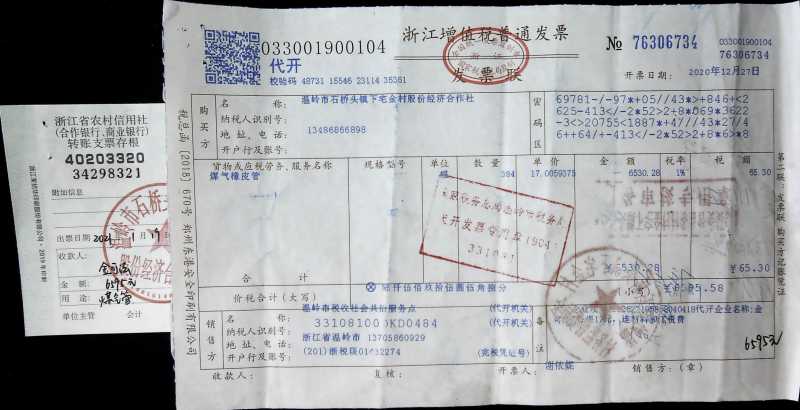 浙江省农村信用社
(合作银行、商业银行)
转账支票存根
40203320
34298321
附加信息
出票日期 2021
收款人:
金额: 6595元
用途: 煤气管
单位主管 会计
033001900104
代开
校验码 48731 15546 23114 35361
浙江增值税普通发票
发票联
№ 76306734
033001900104
76306734
开票日期: 2020年12月27日
税总函(2018)670号 郑州东港安全印刷有限公司
购买方
名称: 温岭市石桥头镇下宅金村股份经济合作社
纳税人识别号:
地址、电话: 13486866898
开户行及账号:
密码区
69781-/-97*+05//43*>+846+<2
625-413</-2*52>2+8*069*3622
-3<>20755<1887*+47//43*27/4
6++64/+-413</-2*52>2+8*6>*8
货物或应税劳务、服务名称 规格型号 单位 数量 单价 金额 税率 税额
煤气橡皮管 384 17.0059375 6530.28 1% 65.30
合计 ¥6530.28 ¥65.30
价税合计(大写) ⊗ 陆仟伍佰玖拾伍圆伍角捌分 (小写) ¥6595.58
销售方
名称: 温岭市税收社会共治服务点 (代开机关)
纳税人识别号: (代开机关)
地址、电话: 浙江省温岭市 13705860929
开户行及账号: (完税凭证号)
备注
6595元
收款人: 复核: 开票人: 谢依妮 销售方:(章)
第二联:发票联 购买方记账凭证